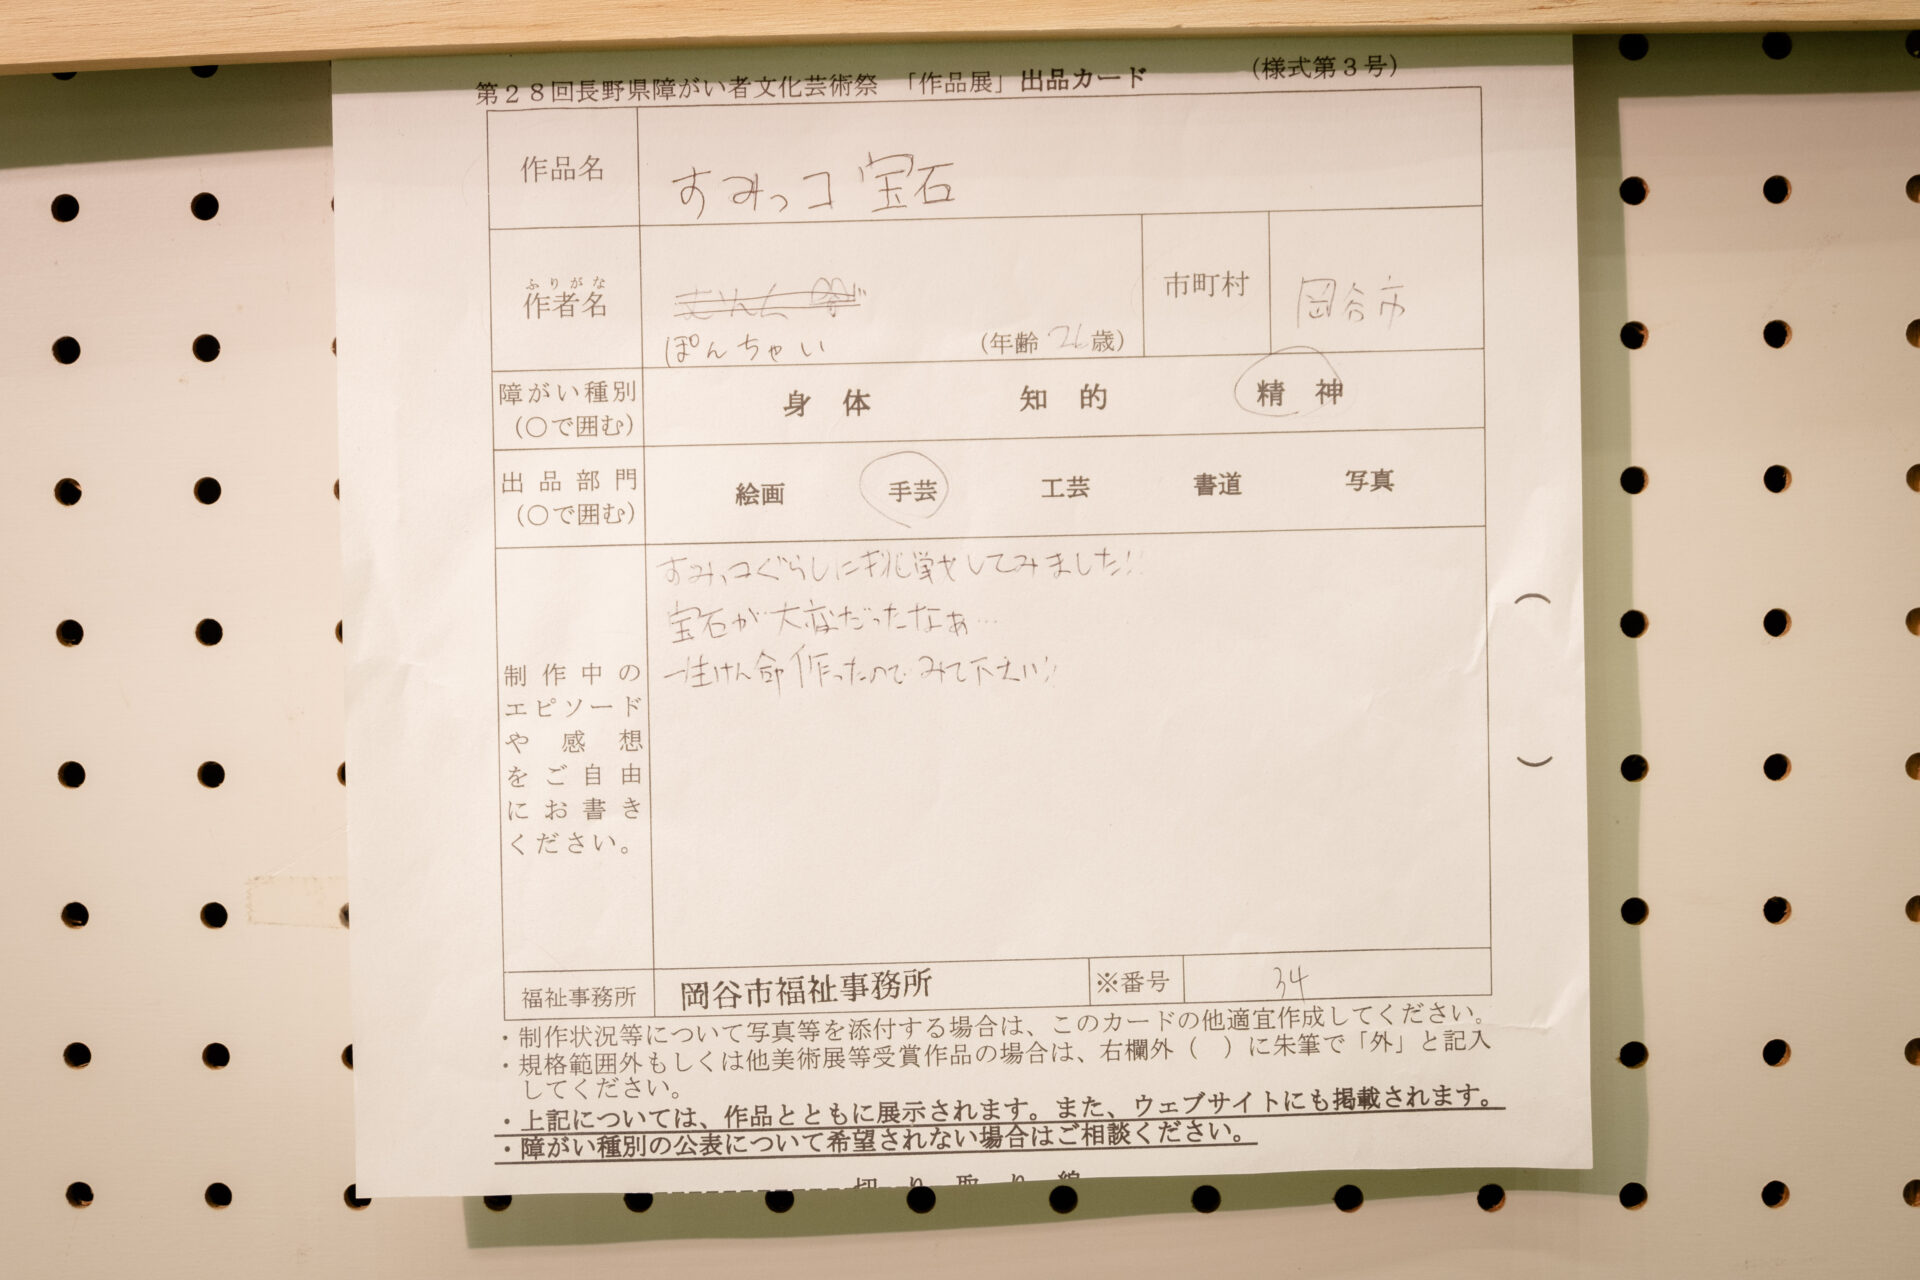 第28回長野県障がい者文化芸術祭 「作品展」出品カード (様式第3号)
作品名 すみっコ 宝石
ふりがな
作者名 ぽんちゃい (年齢 26歳) 市町村 岡谷市
障がい種別 (○で囲む) 身体 知的 精神
出品部門 (○で囲む) 絵画 手芸 工芸 書道 写真
制作中の
エピソード
や感想
をご自由
にお書き
ください。
すみっコぐらしに挑戦してみました!!
宝石が大変だったなぁ…
一生けん命作ったのでみて下さい!!
福祉事務所 岡谷市福祉事務所 ※番号 34
・制作状況等について写真等を添付する場合は、このカードの他適宜作成してください。
・規格範囲外もしくは他美術展等受賞作品の場合は、右欄外( )に朱筆で「外」と記入
してください。
・上記については、作品とともに展示されます。また、ウェブサイトにも掲載されます。
・障がい種別の公表について希望されない場合はご相談ください。
切り取り線